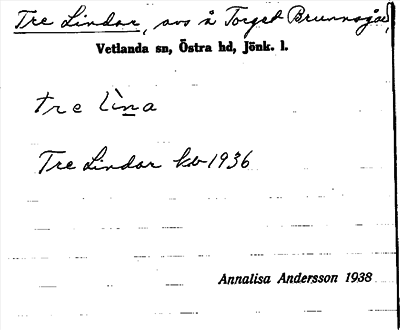 Tre Lindar, avs å Torget Brunnsgår,
Vetlanda sn, Östra hd, Jönk. l.
tre lìna
Tre Lindar kb 1936
Annalisa Andersson 1938